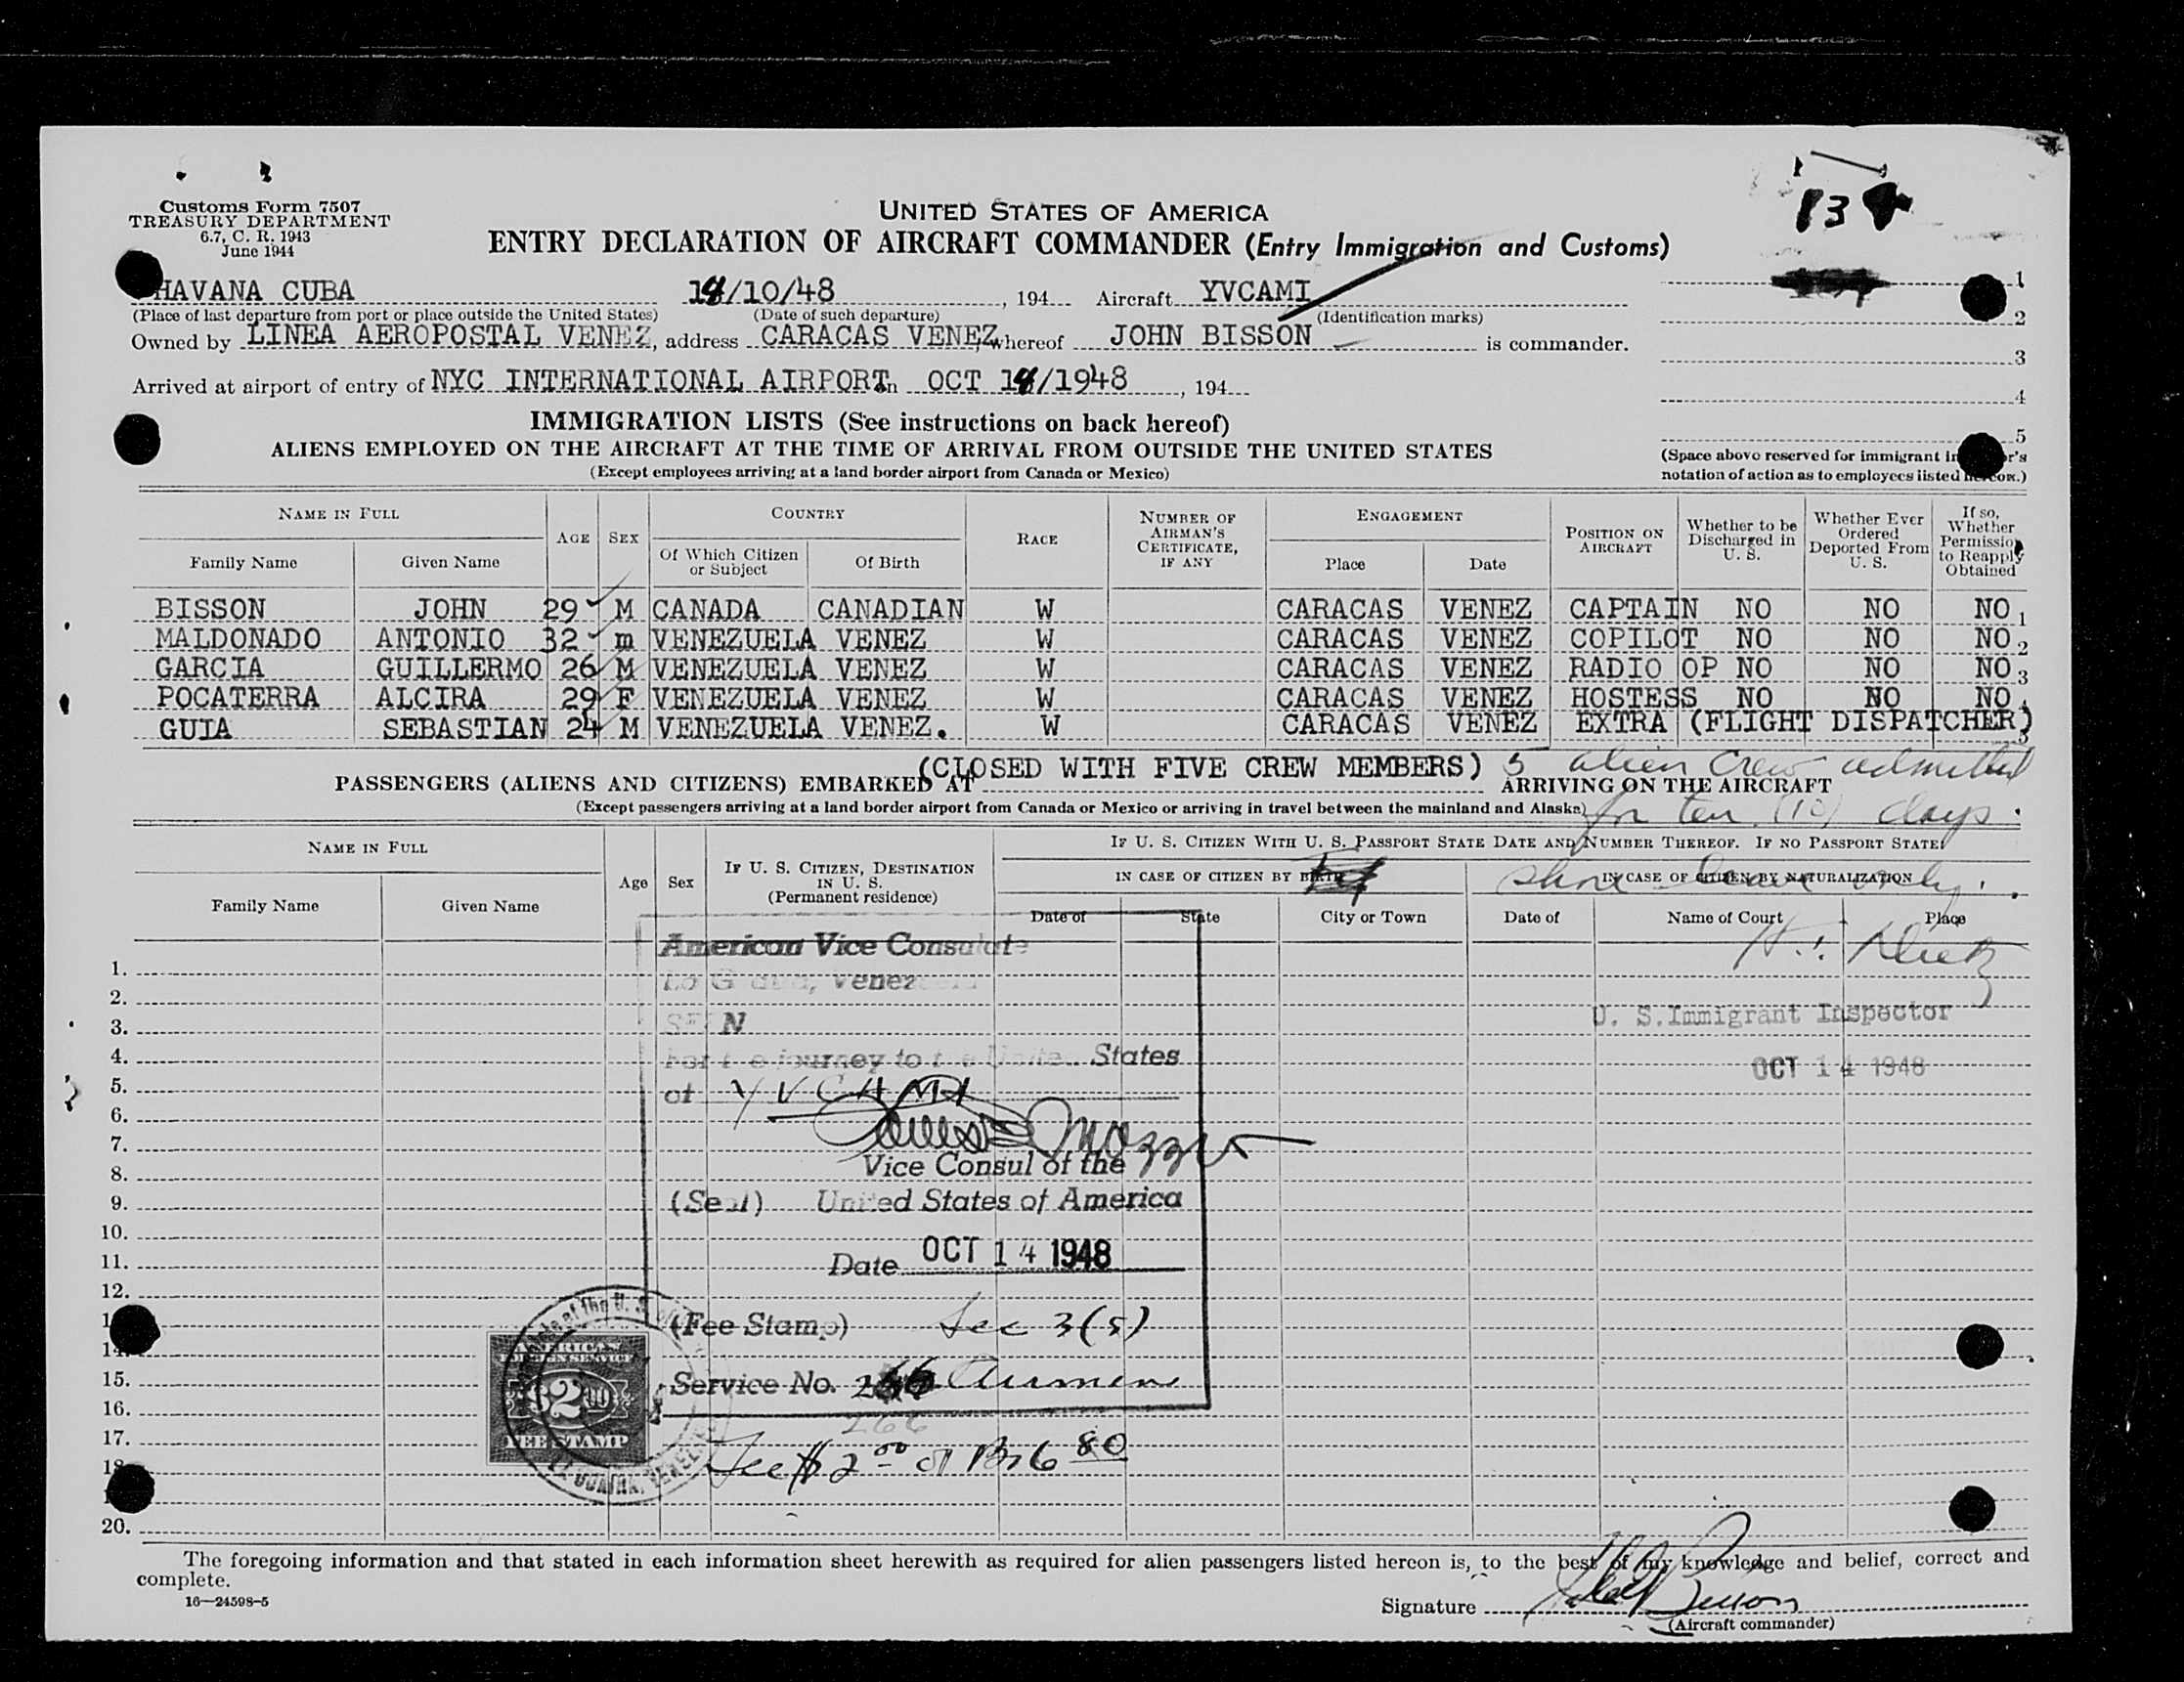 Customs Form 7507
TREASURY DEPARTMENT
6.7, C. R. 1943
June 1944
134
UNITED STATES OF AMERICA
ENTRY DECLARATION OF AIRCRAFT COMMANDER (Entry Immigration and Customs)
HAVANA CUBA 14/10/48, 194 Aircraft YVCAMI
(Place of last departure from port or place outside the United States) (Date of such departure) (Identification marks)
Owned by LINEA AEROPOSTAL VENEZ, address CARACAS VENEZ, whereof JOHN BISSON is commander.
Arrived at airport of entry of NYC INTERNATIONAL AIRPORT OCT 14/1948, 194
1
2
3
4
5
(Space above reserved for immigrant
notation of action as to employees listed hereon.)
IMMIGRATION LISTS (See instructions on back hereof)
ALIENS EMPLOYED ON THE AIRCRAFT AT THE TIME OF ARRIVAL FROM OUTSIDE THE UNITED STATES
(Except employees arriving at a land border airport from Canada or Mexico)
NAME IN FULL AGE SEX COUNTRY RACE NUMBER OF AIRMAN'S CERTIFICATE, IF ANY ENGAGEMENT POSITION ON AIRCRAFT Whether to be Discharged in U. S. Whether Ever Ordered Deported From U. S. If so, Whether Permission to Reapply Obtained
Family Name Given Name Of Which Citizen or Subject Of Birth Place Date
BISSON JOHN 29 M CANADA CANADIAN W CARACAS VENEZ CAPTAIN NO NO NO 1
MALDONADO ANTONIO 32 m VENEZUELA VENEZ W CARACAS VENEZ COPILOT NO NO NO 2
GARCIA GUILLERMO 26 M VENEZUELA VENEZ W CARACAS VENEZ RADIO OP NO NO NO 3
POCATERRA ALCIRA 29 F VENEZUELA VENEZ W CARACAS VENEZ HOSTESS NO NO NO 4
GUIA SEBASTIAN 24 M VENEZUELA VENEZ. W CARACAS VENEZ EXTRA (FLIGHT DISPATCHER) 5
(CLOSED WITH FIVE CREW MEMBERS) 5 alien crew admitted
PASSENGERS (ALIENS AND CITIZENS) EMBARKED AT ARRIVING ON THE AIRCRAFT
(Except passengers arriving at a land border airport from Canada or Mexico or arriving in travel between the mainland and Alaska) for ten (10) days.
NAME IN FULL Age Sex IF U. S. CITIZEN, DESTINATION IN U. S. (Permanent residence) IF U. S. CITIZEN WITH U. S. PASSPORT STATE DATE AND NUMBER THEREOF. IF NO PASSPORT STATE
IN CASE OF CITIZEN BY BIRTH IN CASE OF CITIZEN BY NATURALIZATION
shore leave only.
Family Name Given Name Date of State City or Town Date of Name of Court Place
American Vice Consulate
La Guaira, Venezuela
SEEN
For the journey to the United States
of YVCAMI
Vice Consul of the
(Seal) United States of America
Date OCT 14 1948
(Fee Stamp) Sec 3(5)
Service No. 266 Airmens
266
Fee $2.00 or Bs 6.80
AMERICAN
FOREIGN SERVICE
$2.00
FEE STAMP
U. S. Immigrant Inspector
OCT 14 1948
1.
2.
3.
4.
5.
6.
7.
8.
9.
10.
11.
12.
14.
15.
16.
17.
18.
20.
The foregoing information and that stated in each information sheet herewith as required for alien passengers listed hereon is, to the best of my knowledge and belief, correct and
complete.
16—24598-5
Signature John Bisson
(Aircraft commander)